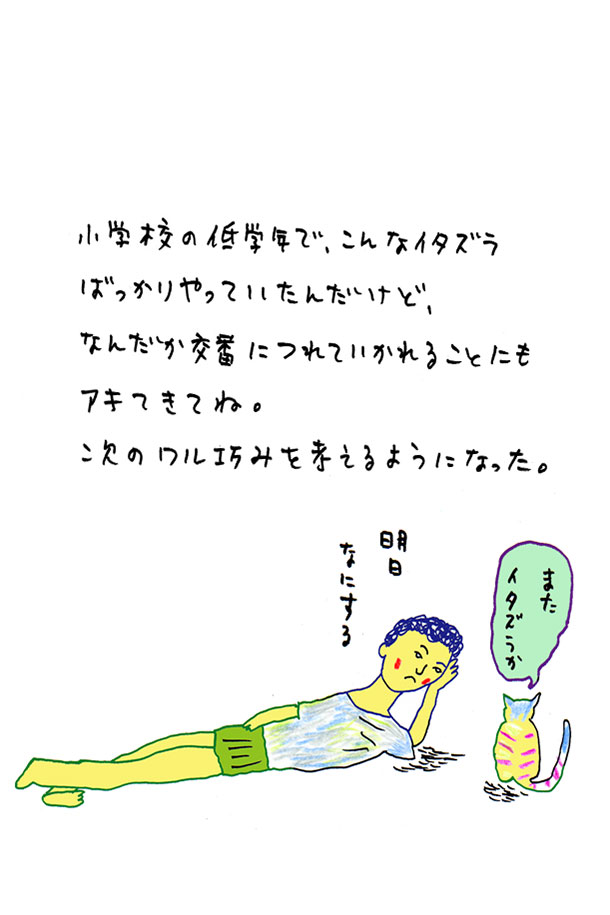 小学校の低学年で、こんなイタズラ
ばっかりやっていたんだけど、
なんだか交番につれていかれることにも
アキてきてね。
次のワル巧みを考えるようになった。
明日
なにする
また
イタズラか